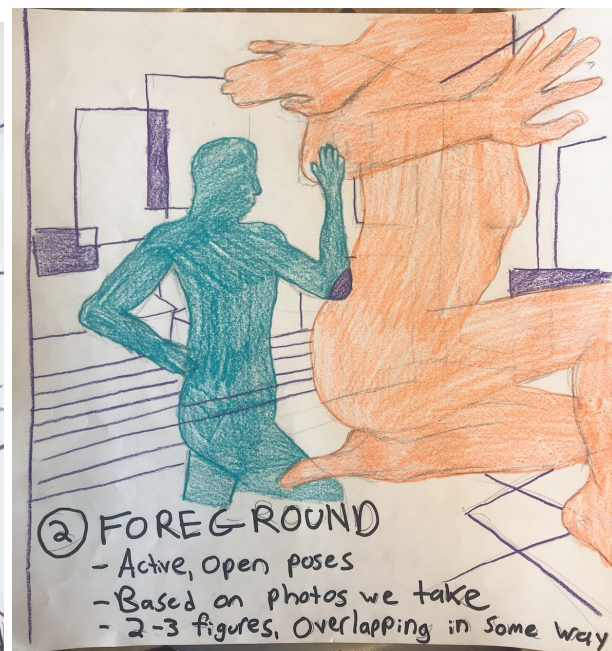 ② FOREGROUND
- Active, open poses
- Based on photos we take
- 2-3 figures, overlapping in some way